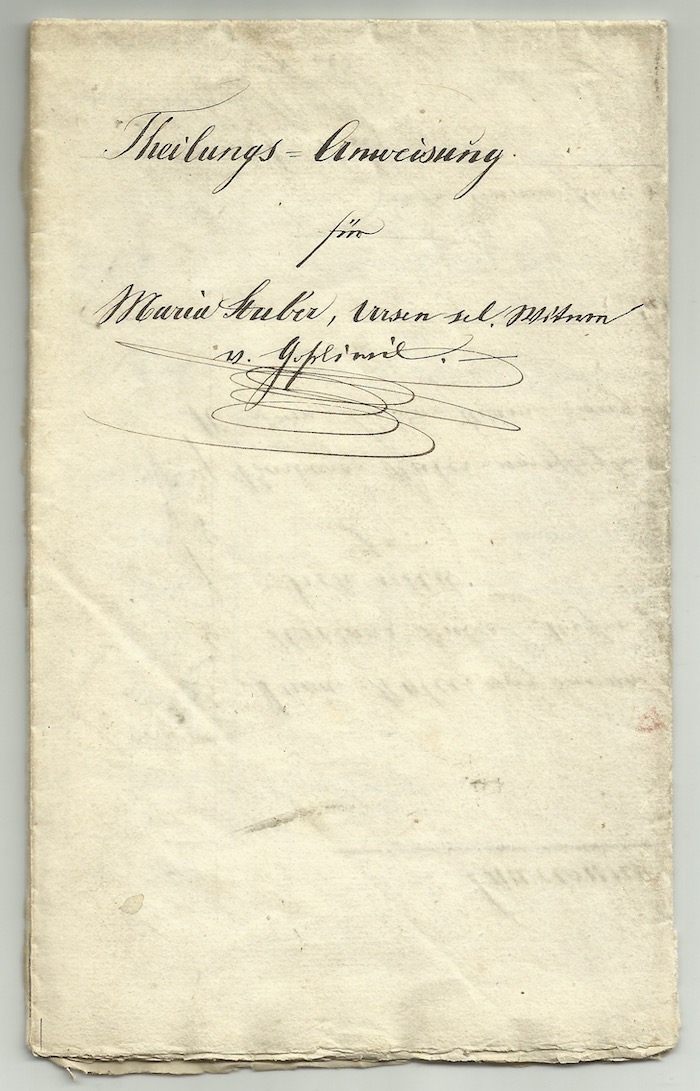 Theilungs=Anweisung
für
Maria Stuber, Ursen sel. Witwe
v. Goßliwil.